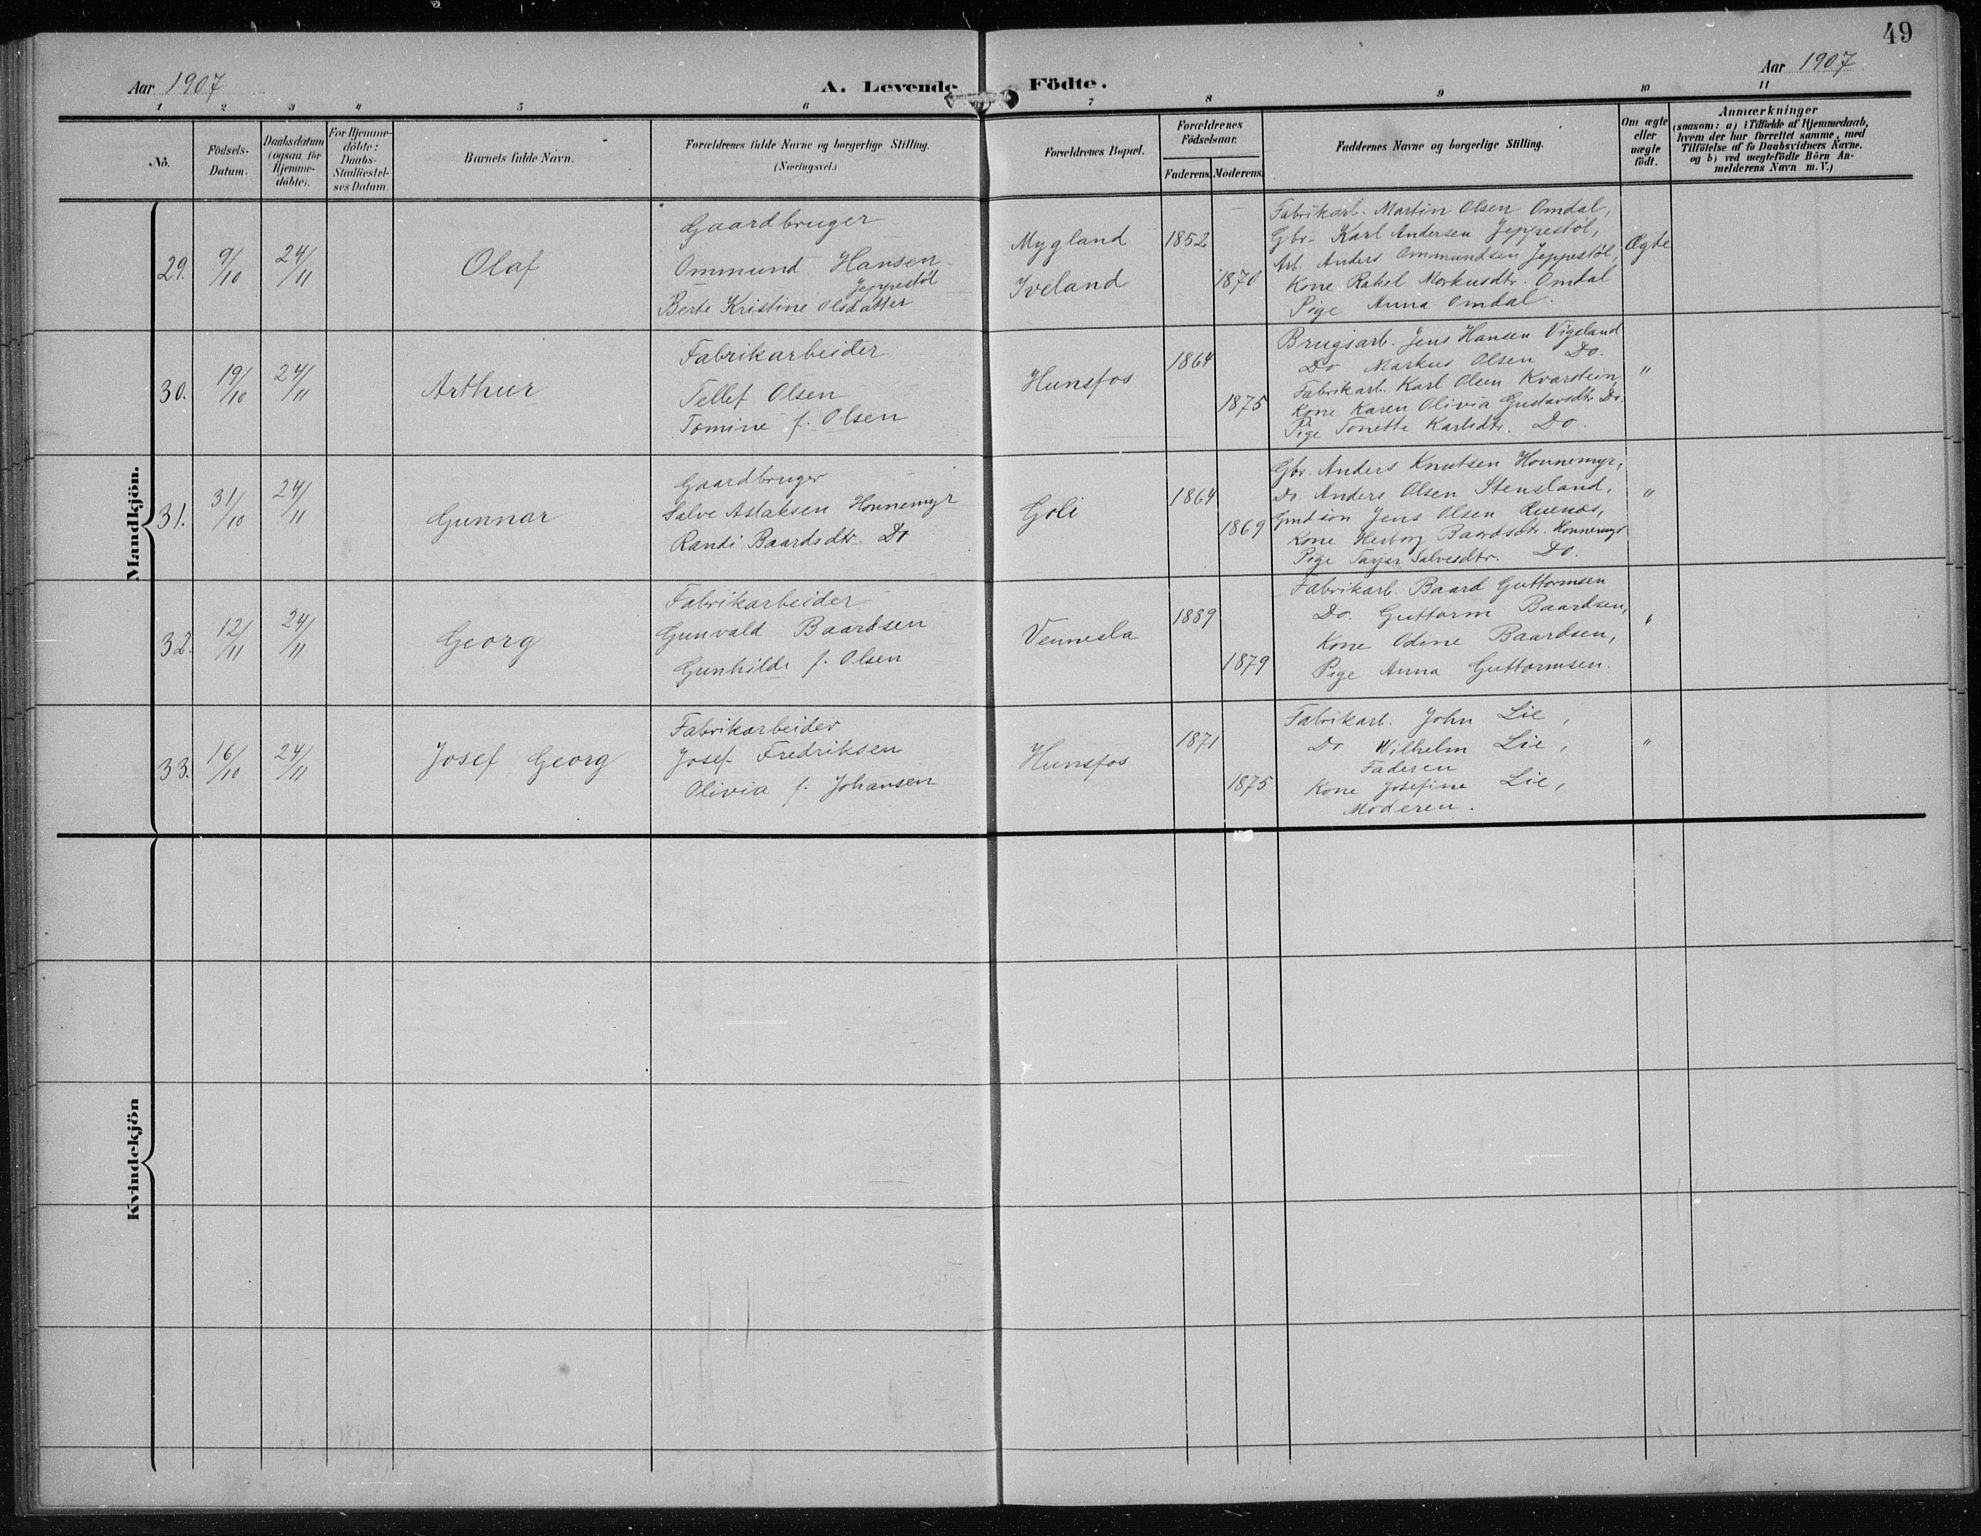 49
Aar 1907
A. Levende Födte.
Aar 1907
1 2 3 4 5 6 7 8 9 10 11
No.
Födsels-Datum.
Daabsdatum (ogsaa for Hjemme-döbte).
For Hjemme-döbte: Daabs-Stadfæstel-ses Datum.
Barnets fulde Navn.
Forældrenes fulde Navne og borgerlige Stilling. (Næringsvei.)
Forældrenes Bopæl.
Forældrenes Födselsaar.
Faderens. Moderens.
Faddernes Navne og borgerlige Stilling.
Om ægte eller uægte födt.
Anmærkninger
(saasom: a) i Tilfælde af Hjemmedaab,
hvem der har forrettet samme, med
Tilföielse af to Daabsvidners Navne.
og b) ved uægtefödte Börn An-
melderens Navn m. V.)
Mandkjön.
29. 9/10 24/11 Olaf
Gaardbruger
Ommund Hansen
Jeppestöl
Berte Kristine Olsdatter
Mygland
Iveland
1852
1870
Fabrikarb. Martin Olsen Omdal,
Gbr. Karl Andersen Jeppestöl,
Arb. Anders Ommundsen Jeppestöl,
Kone Rakel Markusdtr. Omdal
Pige Anna Omdal.
Ægte
30. 19/10 24/11 Arthur
Fabrikarbeider
Tellef Olsen
Tomine f. Olsen
Hunsfos
1864
1875
Brugsarb. Jens Hansen Vigeland
Do Markus Olsen Do.
Fabrikarb. Karl Olsen Kvarstein,
Kone Karen Olivia Gustavsdtr. Do.
Pige Tonette Karlsdtr. Do.
"
31. 31/10 24/11 Gunnar
Gaardbruger
Salve Aslaksen Honnemyr
Randi Baardsdtr. Do
Goli
1864
1869
Gbr. Anders Knutsen Honnemyr,
Do. Anders Olsen Stensland,
Gmdsön Jens Olsen
Kone Herborg Baardsdtr. Honnemyr
Pige Salvesdtr. Do.
"
32. 12/11 24/11 Georg
Fabrikarbeider
Gunvald Baardsen
Gunhilde f. Olsen
Vennesla
1889
1879
Fabrikarb. Baard Guttormsen
Do. Guttorm Baardsen,
Kone Odine Baardsen,
Pige Anna Guttormsen.
"
33. 16/10 24/11 Josef Georg
Fabrikarbeider
Josef Fredriksen
Olivia f. Johansen
Hunsfos
1871
1875
Fabrikarb. John Lie,
Do Wilhelm Lie,
Faderen
Kone Josefine Lie,
Moderen.
"
Kvindekjön